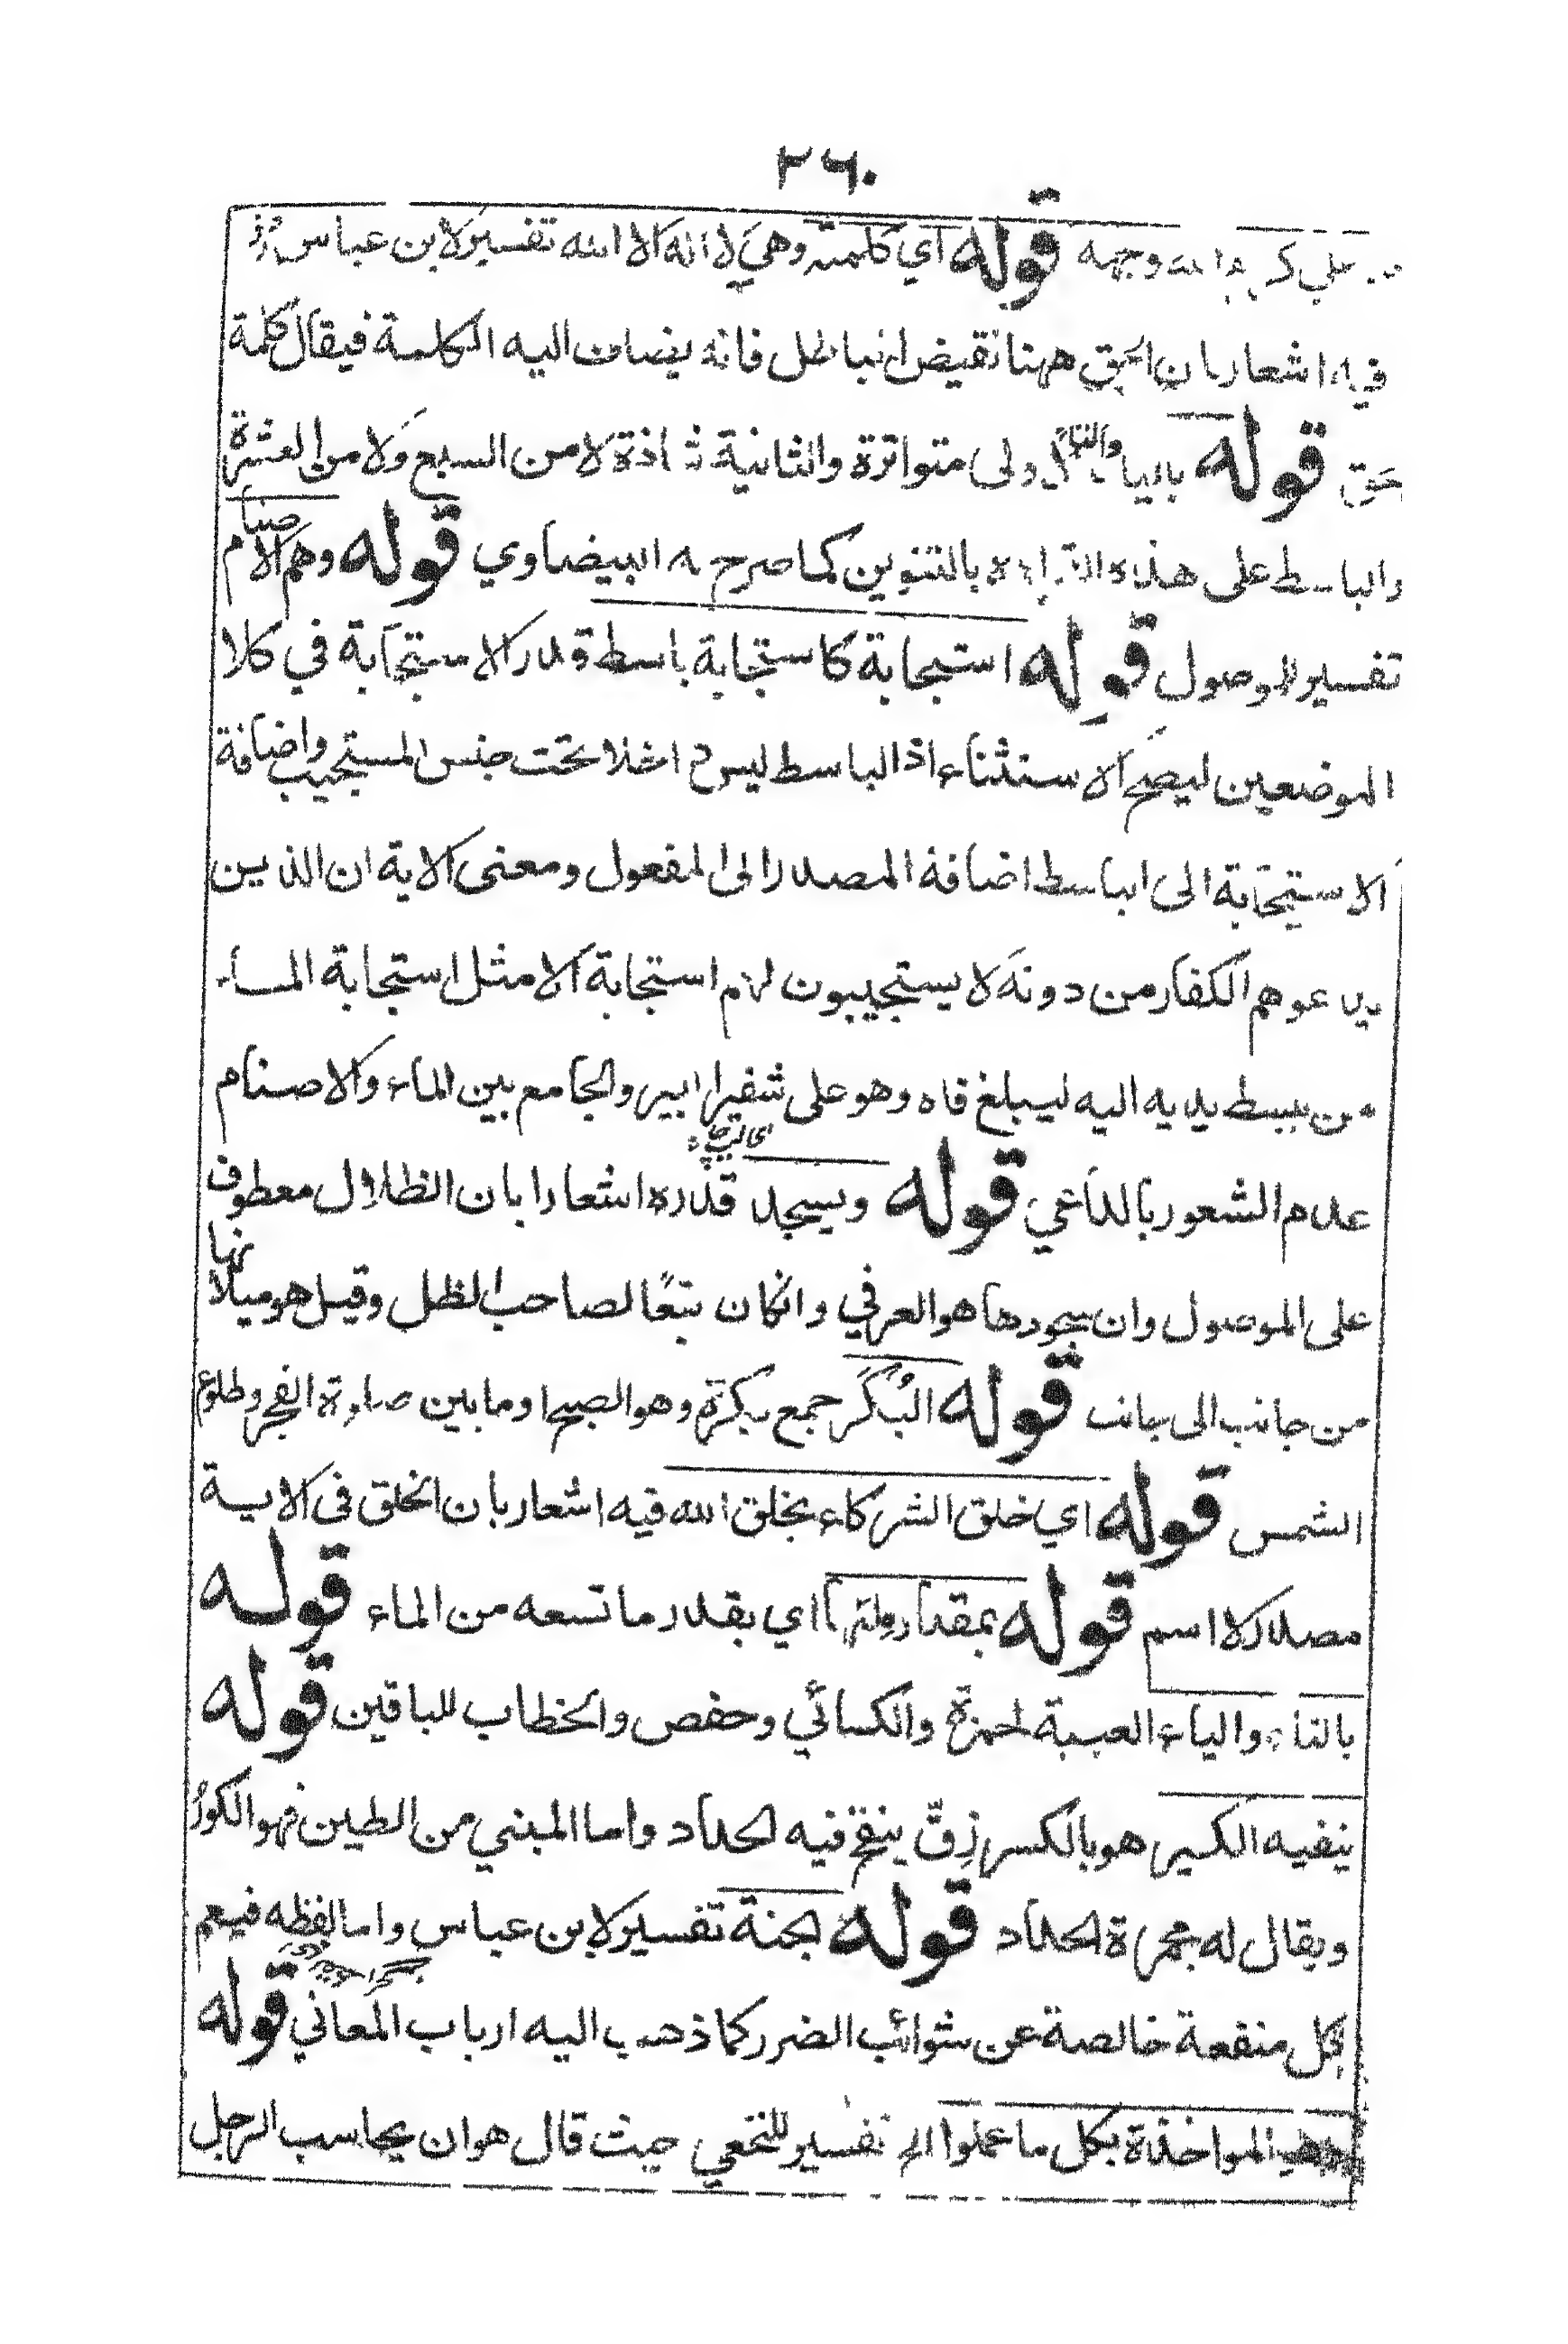 ٢٦٠
علي كرم الله وجهه قوله اي كلمته وهي لا اله الا الله تفسير لابن عباس رض
فيه اشعار بان الحق ههنا نقيض الباطل فانه يضاف اليه الكلمة فيقال كلمة
حق قوله بالياء والتاء الاولى متواترة والثانية شاذة لا من السبع ولا من العشرة
والباسط على هذه القراءة بالتنوين كما صرح به البيضاوي قوله وهم الاصنام
تفسير للموصول قوله استجابة كاستجابة باسط قدر الاستجابة في كلا
الموضعين ليصح الاستثناء اذ الباسط ليس داخلا تحت جنس المستجيب واضافة
الاستجابة الى الباسط اضافة المصدر الى المفعول ومعنى الاية ان الذين
يدعوهم الكفار من دونه لا يستجيبون لهم استجابة الا مثل استجابة الماء
من يبسط يديه اليه ليبلغ فاه وهو على شفير البير والجامع بين الماء والاصنام
عدم الشعور بالداعي قوله ويسجد قدره اشعارا بان الظلال معطوف
على الموصول وان سجودها هو العرفي وانكان تبعًا لصاحب الظل وقيل هو ميلانها
من جانب الى جانب قوله البُكَر جمع بكرة وهو الصبح او ما بين صلوة الفجر وطلوع
الشمس قوله اي خلق الشركاء بخلق الله فيه اشعار بان الخلق في الاية
مصدر لا اسم قوله بمقدار ملئها اي بقدر ما تسعه من الماء قوله
بالتاء والياء الغيبة لحمزة والكسائي وحفص والخطاب للباقين قوله
ينفيه الكير هو بالكسر زِقّ ينفخ فيه الحداد واما المبني من الطين فهو الكورُ
ويقال له مجمرة الحداد قوله الجنة تفسير لابن عباس واما لفظه فيعم
لكل منفعة خالصة عن شوائب الضرر كما ذهب اليه ارباب المعاني قوله
وهو المواخذة بكل ما عملوا الخ تفسير للنخعي حيث قال هو ان يحاسب الرجل